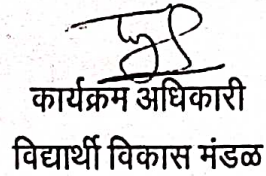 कार्यक्रम अधिकारी
विद्यार्थी विकास मंडळ